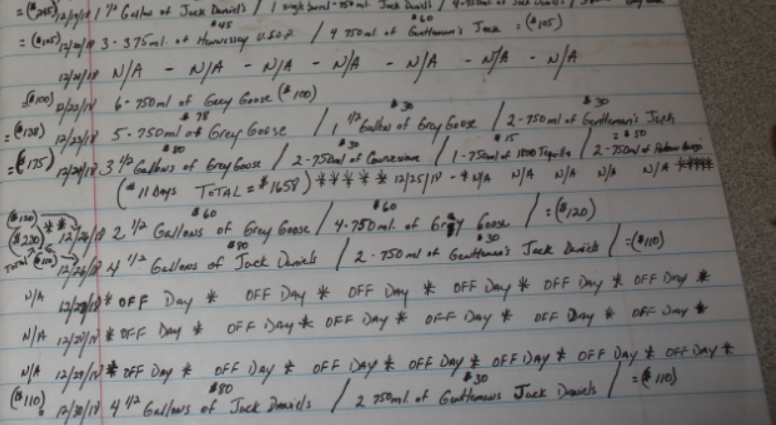 =($245) 12/19/18 1 1/2 Gallon of Jack Daniel's / 1 single barrel-750ml Jack Daniel's / 4-750ml of Jack Daniel's /
$45 $60
=($105) 12/20/18 3-375ml. of Hennessey V.S.O.P / 4 750ml. of Gentleman's Jack = ($105)
12/21/18 N/A - N/A - N/A - N/A - N/A - N/A - N/A
($100) 12/22/18 6-750ml of Grey Goose ($100)
$78 $30 $30
=($138) 12/23/18 5-750ml of Grey Goose / 1, 1/2 Gallon of Grey Goose / 2-750ml of Gentleman's Jack
$80 $30 $15 =$50
=($175) 12/24/18 3 1/2 Gallons of Grey Goose / 2-750ml of Courvoisier / 1-750ml of 1800 Tequilla / 2-750ml of
(#11 Days TOTAL = $1658) ***** 12/25/18 - * N/A N/A N/A N/A N/A *****
$60 $60
($120) ** 12/26/18 2 1/2 Gallons of Grey Goose / 4-750ml. of Grey Goose / =($120)
($230)
$80 $30
Total ($110) 12/26/18 4 1/2 Gallons of Jack Daniels / 2-750ml of Gentleman's Jack Daniels / =($110)
N/A 12/27/18 * OFF Day * OFF Day * OFF Day * OFF Day * OFF Day * OFF Day *
N/A 12/28/18 * OFF Day * OFF Day * OFF Day * OFF Day * OFF Day * OFF Day *
N/A 12/29/18 * OFF Day * OFF Day * OFF Day * OFF Day * OFF Day * OFF Day * OFF Day *
$80 $30
($110) 12/30/18 4 1/2 Gallons of Jack Daniels / 2 750ml. of Gentlemans Jack Daniels / =($110)